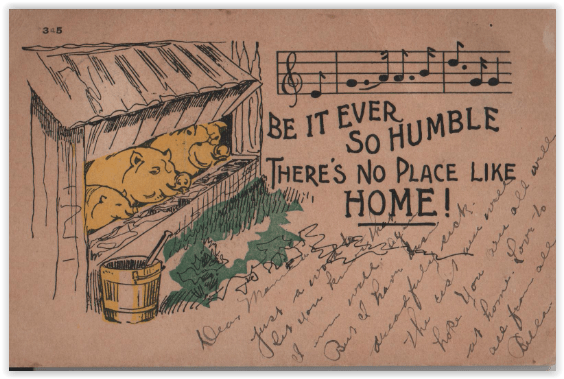 345
BE IT EVER
SO HUMBLE
THERE'S NO PLACE LIKE
HOME!
Dear Mama
Just a word
let you know
I am well.
But I have been
dreadfully sick.
The rest are well
hope you are all well
at home. Love to
all from all
Della.